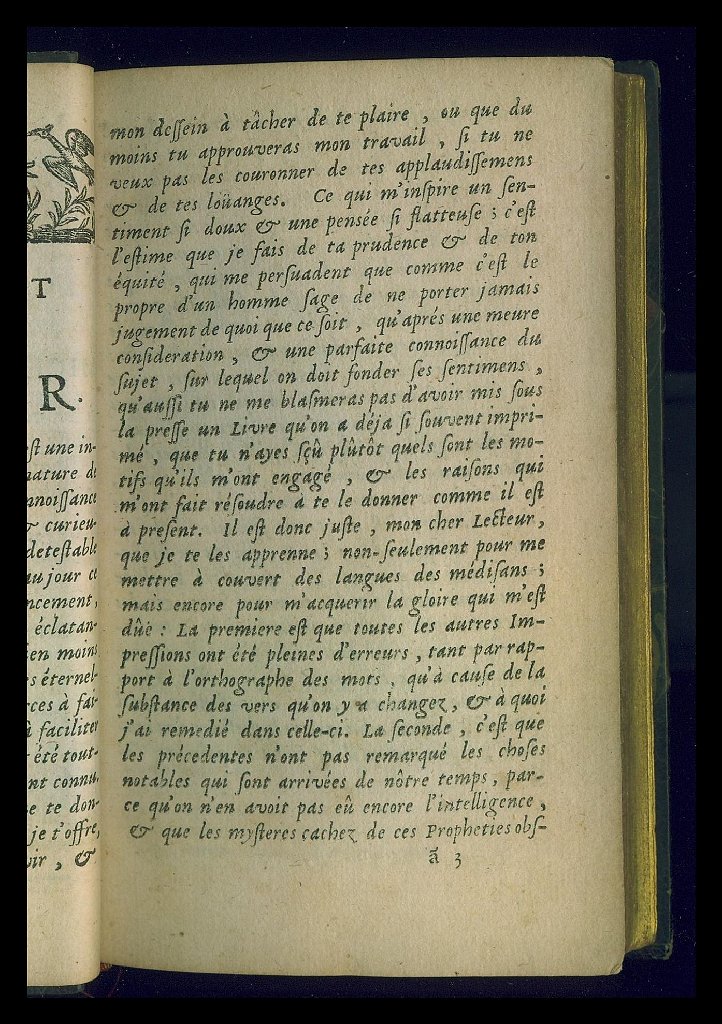 T
R.
st une in-
nature de
nnoissance
& curieu-
detestable
au jour ce
ncement,
éclatan-
en moins
s éternel-
rces à fai-
à faciliter
été tout-
nt connu.
e te don-
je t'offre,
oir, &
mon dessein à tâcher de te plaire, ou que du
moins tu approuveras mon travail, si tu ne
veux pas les couronner de tes applaudissemens
& de tes loüanges. Ce qui m'inspire un sen-
timent si doux & une pensée si flatteuse; c'est
l'estime que je fais de ta prudence & de ton
équité, qui me persuadent que comme c'est le
propre d'un homme sage de ne porter jamais
jugement de quoi que ce soit, qu'aprés une meure
consideration, & une parfaite connoissance du
sujet, sur lequel on doit fonder ses sentimens,
qu'aussi tu ne me blasmeras pas d'avoir mis sous
la presse un Livre qu'on a déja si souvent impri-
mé, que tu n'ayes sçû plûtôt quels sont les mo-
tifs qu'ils m'ont engagé, & les raisons qui
m'ont fait résoudre à te le donner comme il est
à present. Il est donc juste, mon cher Lecteur,
que je te les apprenne; non-seulement pour me
mettre à couvert des langues des médisans;
mais encore pour m'acquerir la gloire qui m'est
dûe: La premiere est que toutes les autres Im-
pressions ont été pleines d'erreurs, tant par rap-
port à l'orthographe des mots, qu'à cause de la
substance des vers qu'on y a changez, & à quoi
j'ai remedié dans celle-ci. La seconde, c'est que
les précedentes n'ont pas remarqué les choses
notables qui sont arrivées de nôtre temps, par-
ce qu'on n'en avoit pas eû encore l'intelligence,
& que les mysteres cachez de ces Propheties obs-
ã 3